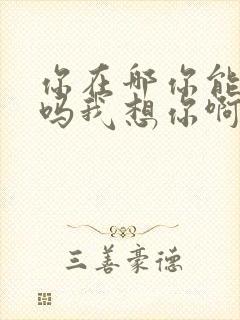 你在哪你能
吗我想你啊
三善豪德